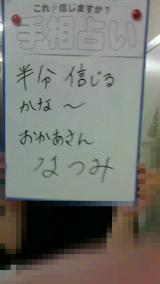 これ信じますか?
手相占い
半分信じる
かな〜
おかあさん
なつみ